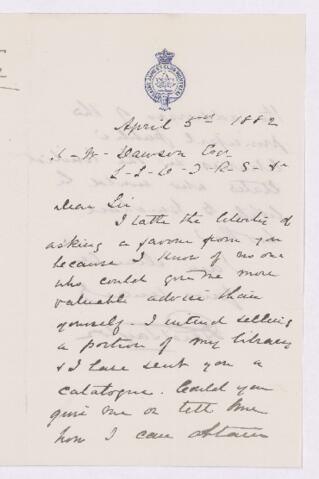 SAINT JAMES'S CLUB MONTREAL
April 3rd 1882
J-W- Dawson Esqr
L-L-D-F-R-S-&c
Dear Sir
I take the liberty of
asking a favour from you
because I know of no one
who could give me more
valuable advice than
yourself. I intend selling
a portion of my library
& I have sent you a
catalogue. Could you
give me or tell me
how I can obtain